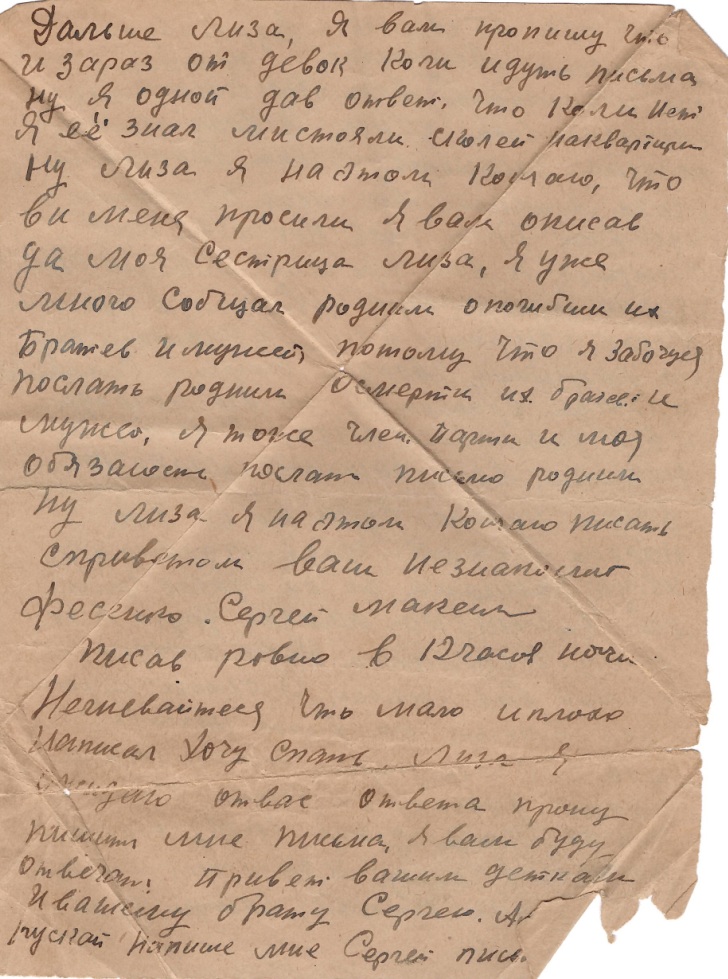 Дальше Лиза, Я вам пропишу что
и зараз от девок Коли идуть письма
ну я одной дав ответ. что Коли нет
Я её знал мистояли сколей наквартири
Ну Лиза я наэтом Кончаю, что
ви меня просили я вам описав
да моя Сестрица Лиза, Я уже
много Собщал родним опогибши их
Братев и мужей, потому что я забочуся
послать родним осмерти их братев и
мужей, я тоже член Парти и моя
обязаность послать письмо родним
ну Лиза я наэтом Кончаю писать
сприветом ваш незнакомит
Фесенко. Сергей Максим
Писав ровно в 12 часов ночи
Негневайтеся что мало иплохо
написал Хочу спать. Лиза Я
ожидаю отвас ответа прошу
пишить мне письма, я вам буду
отвечать. Привет вашим деткам
Ивашему брату Сергею.
пускай напише мне Сергей